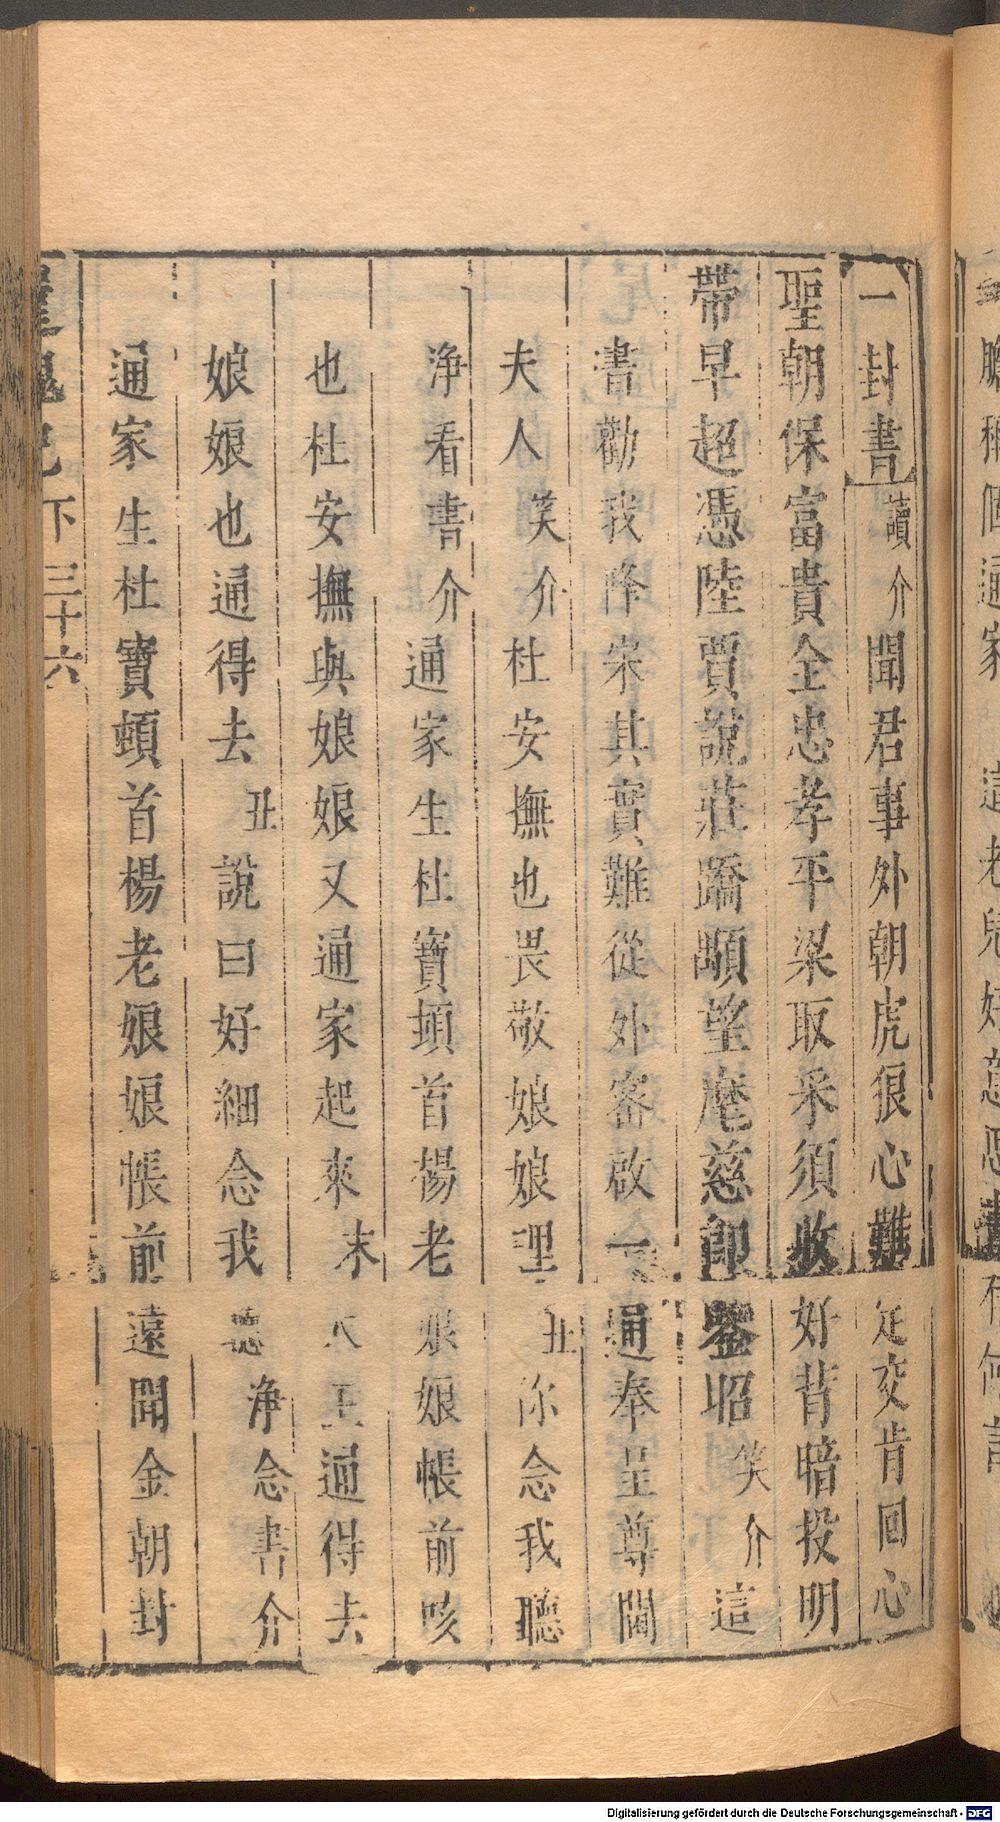 一封書讀介聞君事外朝虎狼心難定交肯回心
聖朝保富貴全忠孝平梁取采須收好背暗投明
帶早超憑陸賈說莊蹻顒望麾慈卽鑒昭笑介這
書勸我降宋其實難從外密啟一通奉呈尊閫
夫人笑介杜安撫也畏敬娘娘理丑你念我聽
淨看書介通家生杜寶頓首楊老娘娘帳前咳
也杜安撫與娘娘又通家起來末大王通得去
娘娘也通得去丑說曰好細念我聽淨念書介
通家生杜寶頓首楊老娘娘帳前遠聞金朝封
還魂記 下 三十六
Digitalisierung gefördert durch die Deutsche Forschungsgemeinschaft - DFG